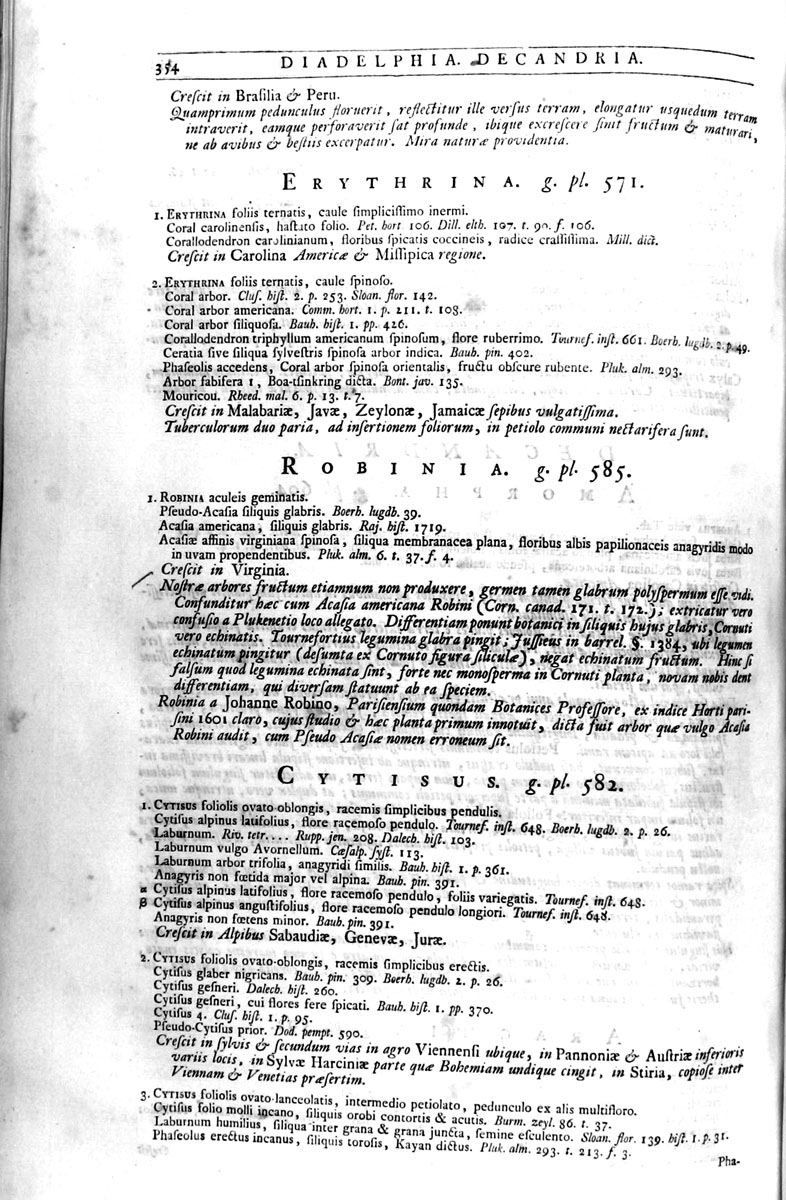 354
DIADELPHIA. DECANDRIA.
Creſcit in Braſilia & Peru.
Quamprimum pedunculus floruerit, reflectitur ille verſus terram, elongatur usquedum terram
intraverit, eamque perforaverit ſat profunde, ibique excreſcere ſinit fructum & maturari,
ne ab avibus & beſtiis excerpatur. Mira naturæ providentia.
ERYTHRINA. g. pl. 571.
1. ERYTHRINA foliis ternatis, caule ſimpliciſſimo inermi.
Coral carolinenſis, haſtato folio. Pet. hort 106. Dill. elth. 107. t. 90. f. 106.
Corallodendron carolinianum, floribus ſpicatis coccineis, radice craſſiſſima. Mill. dict.
Creſcit in Carolina Americæ & Miſſipica regione.
2. ERYTHRINA foliis ternatis, caule ſpinoſo.
Coral arbor. Cluſ. hiſt. 2. p. 253. Sloan. flor. 142.
Coral arbor americana. Comm. hort. 1. p. 211. t. 108.
Coral arbor ſiliquoſa. Bauh. hiſt. 1. pp. 426.
Corallodendron triphyllum americanum ſpinoſum, flore ruberrimo. Tournef. inſt. 661. Boerh. lugdb. 2. p. 49.
Ceratia ſive ſiliqua ſylveſtris ſpinoſa arbor indica. Bauh. pin. 402.
Phaſeolis accedens, Coral arbor ſpinoſa orientalis, fructu obſcure rubente. Pluk. alm. 293.
Arbor fabifera 1, Boa-tſinkring dicta. Bont. jav. 135.
Mouricou. Rheed. mal. 6. p. 13. t. 7.
Creſcit in Malabariæ, Javæ, Zeylonæ, Jamaicæ ſepibus vulgatiſſima.
Tuberculorum duo paria, ad inſertionem foliorum, in petiolo communi nectarifera ſunt.
ROBINIA. g. pl. 585.
1. ROBINIA aculeis geminatis.
Pſeudo-Acaſia ſiliquis glabris. Boerh. lugdb. 39.
Acaſia americana, ſiliquis glabris. Raj. hiſt. 1719.
Acaſiæ affinis virginiana ſpinoſa, ſiliqua membranacea plana, floribus albis papilionaceis anagyridis modo
in uvam propendentibus. Pluk. alm. 6. t. 37. f. 4.
Creſcit in Virginia.
Noſtræ arbores fructum etiamnum non produxere, germen tamen glabrum polyſpermum eſſe vidi.
Confunditur hæc cum Acaſia americana Robini (Corn. canad. 171. t. 172.); extricatur vero
confuſio a Plukenetio loco allegato. Differentiam ponunt botanici in ſiliquis hujus glabris, Cornuti
vero echinatis. Tournefortius legumina glabra pingit; Juſſieus in barrel. §. 1384, ubi legumen
echinatum pingitur (deſumta ex Cornuto figura ſiliculæ), negat echinatum fructum. Hinc ſi
falſum quod legumina echinata ſint, forte nec monoſperma in Cornuti planta, novam nobis dent
differentiam, qui diverſam ſtatuunt ab ea ſpeciem.
Robinia a Johanne Robino, Pariſienſium quondam Botanices Profeſſore, ex indice Horti pari-
ſini 1601 claro, cujus ſtudio & hæc planta primum innotuit, dicta fuit arbor quæ vulgo Acaſia
Robini audit, cum Pſeudo Acaſiæ nomen erroneum ſit.
CYTISUS. g. pl. 582.
1. CYTISUS foliolis ovato-oblongis, racemis ſimplicibus pendulis.
Cytiſus alpinus latifolius, flore racemoſo pendulo. Tournef. inſt. 648. Boerh. lugdb. 2. p. 26.
Laburnum. Riv. tetr.... Rupp. jen. 208. Dalech. hiſt. 103.
Laburnum vulgo Avornellum. Cæſalp. ſyſt. 113.
Laburnum arbor trifolia, anagyridi ſimilis. Bauh. hiſt. 1. p. 361.
Anagyris non fœtida major vel alpina. Bauh. pin. 391.
α Cytiſus alpinus latifolius, flore racemoſo pendulo, foliis variegatis. Tournef. inſt. 648.
β Cytiſus alpinus anguſtifolius, flore racemoſo pendulo longiori. Tournef. inſt. 648.
Anagyris non fœtens minor. Bauh. pin. 391.
Creſcit in Alpibus Sabaudiæ, Genevæ, Juræ.
2. CYTISUS foliolis ovato-oblongis, racemis ſimplicibus erectis.
Cytiſus glaber nigricans. Bauh. pin. 309. Boerh. lugdb. 2. p. 26.
Cytiſus geſneri. Dalech. hiſt. 260.
Cytiſus geſneri, cui flores fere ſpicati. Bauh. hiſt. 1. pp. 370.
Cytiſus 4. Cluſ. hiſt. 1. p. 95.
Pſeudo-Cytiſus prior. Dod. pempt. 590.
Creſcit in ſylvis & ſecundum vias in agro Viennenſi ubique, in Pannoniæ & Auſtriæ inferioris
variis locis, in Sylvæ Harciniæ parte quæ Bohemiam undique cingit, in Stiria, copioſe inter
Viennam & Venetias præſertim.
3. CYTISUS foliolis ovato-lanceolatis, intermedio petiolato, pedunculo ex alis multifloro.
Cytiſus folio molli incano, ſiliquis orobi contortis & acutis. Burm. zeyl. 86. t. 37.
Laburnum humilius, ſiliqua inter grana & grana juncta, ſemine eſculento. Sloan. flor. 139. hiſt. 1. p. 31.
Phaſeolus erectus incanus, ſiliquis toroſis, Kayan dictus. Pluk. alm. 293. t. 213. f. 3.
Pha-